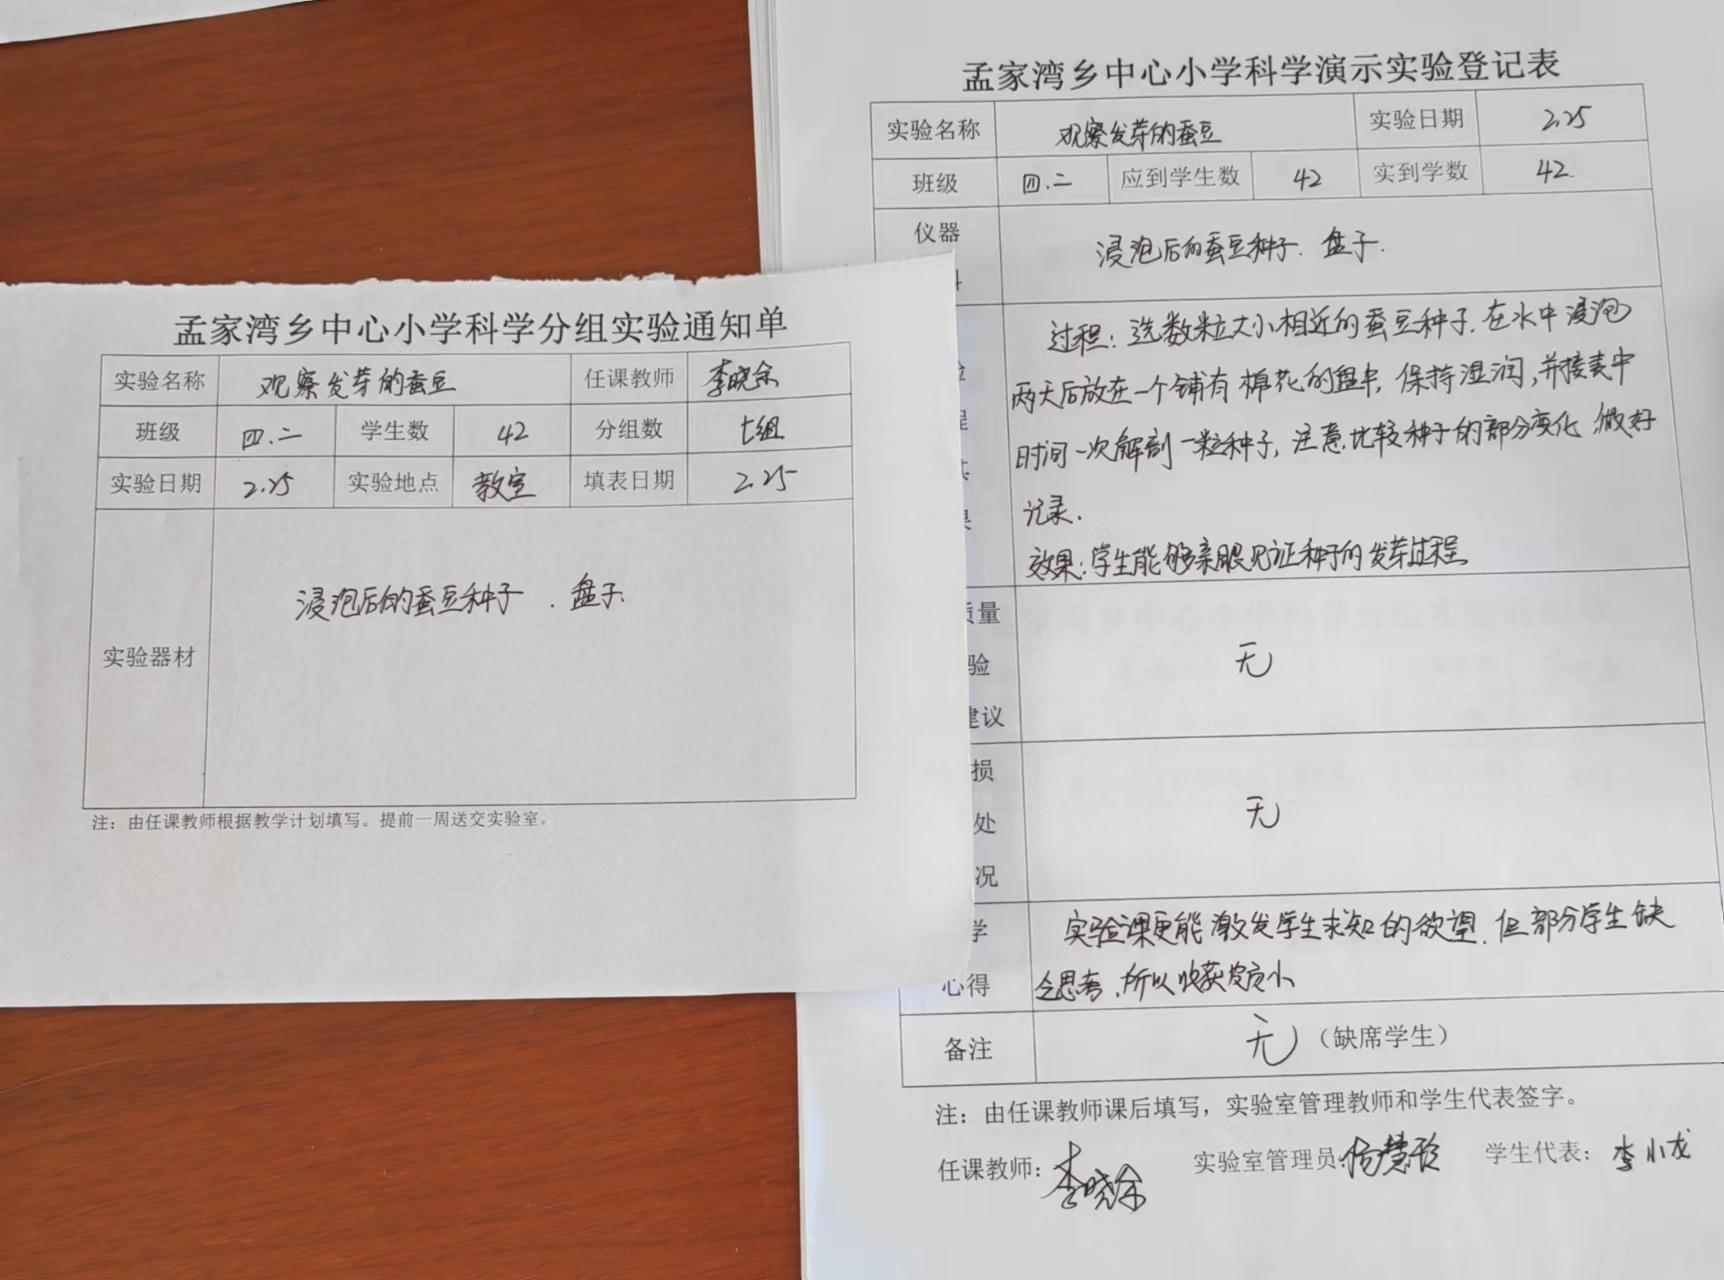 孟家湾乡中心小学科学分组实验通知单
实验名称 观察发芽的蚕豆 任课教师 李晓余
班级 四.二 学生数 42 分组数 七组
实验日期 2.25 实验地点 教室 填表日期 2.25
实验器材 浸泡后的蚕豆种子、盘子.
注：由任课教师根据教学计划填写。提前一周送交实验室。
孟家湾乡中心小学科学演示实验登记表
实验名称 观察发芽的蚕豆 实验日期 2.25
班级 四.二 应到学生数 42 实到学数 42.
仪器
浸泡后的蚕豆种子、盘子.
过程：选数粒大小相近的蚕豆种子.在水中浸泡
两天后放在一个铺有棉花的盘中,保持湿润,并按表中
时间一次解剖一粒种子,注意比较种子的部分变化.做好
记录.
效果:学生能够亲眼见证种子的发芽过程.
质量
验
无
建议
损
处
无
况
学
实验课更能激发学生求知的欲望.但部分学生缺
心得 乏思考,所以收获
备注 无（缺席学生）
注：由任课教师课后填写，实验室管理教师和学生代表签字。
任课教师：李晓余 实验室管理员：杨慧玲 学生代表：李小龙